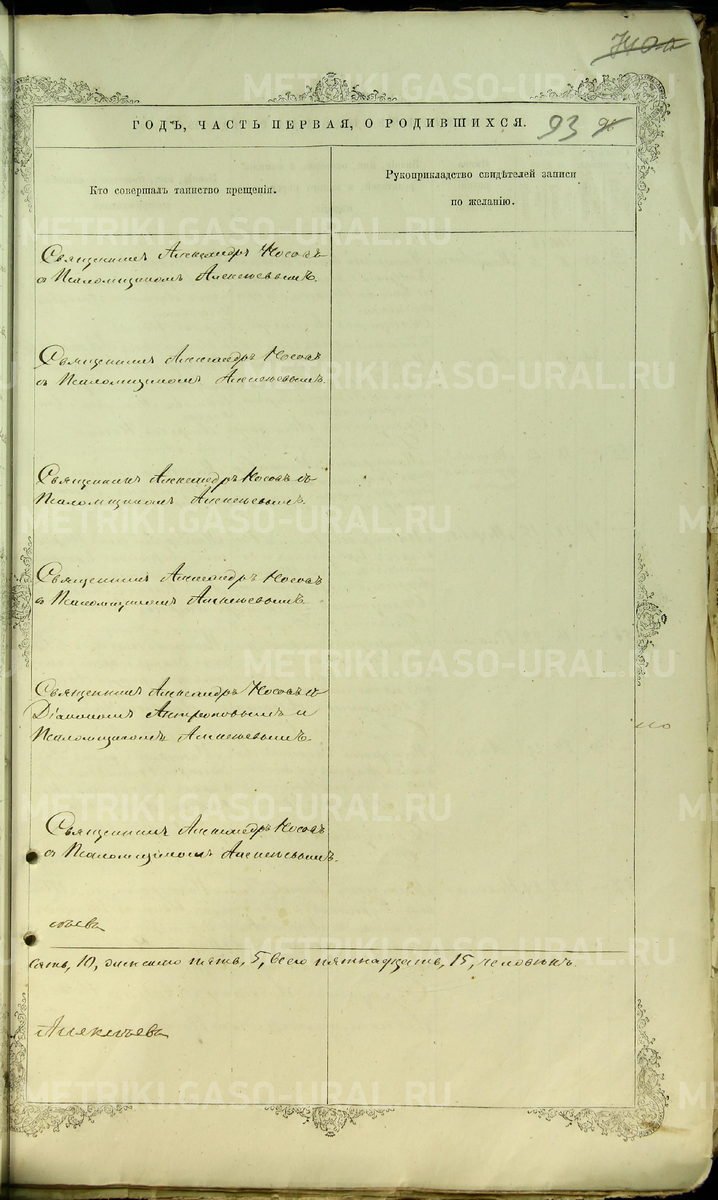 ГОДЪ, ЧАСТЬ ПЕРВАЯ, О РОДИВШИХСЯ.
93
Кто совершалъ таинство крещенія.
Рукоприкладство свидѣтелей записи
по желанію.
Священникъ Александръ Носовъ
съ Псаломщикомъ Алексѣевымъ.
Священникъ Александръ Носовъ
съ Псаломщикомъ Алексѣевымъ.
Священникъ Александръ Носовъ съ
Псаломщикомъ Алексѣевымъ.
Священникъ Александръ Носовъ
съ Псаломщикомъ Алексѣевымъ
Священникъ Александръ Носовъ съ
Діакономъ Антроповымъ и
Псаломщикомъ Алексѣевымъ.
Священникъ Александръ Носовъ
съ Псаломщикомъ Алексѣевымъ.
сять, 10, женска пять, 5, всего пятнадцать, 15, человѣкъ.
Алексѣевъ
METRIKI.GASO-URAL.RU